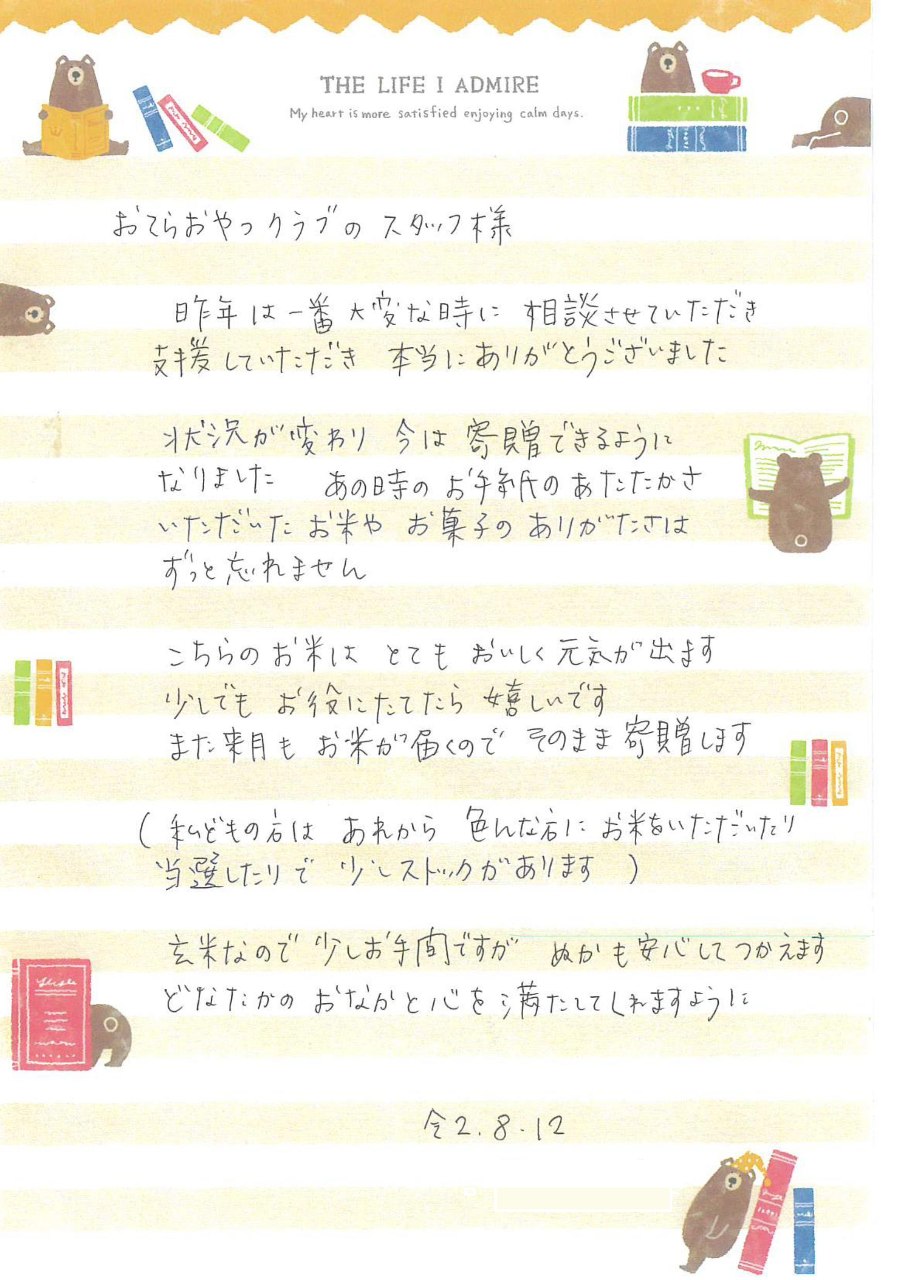 THE LIFE I ADMIRE
My heart is more satisfied enjoying calm days.
おてらおやつクラブの スタッフ様
昨年は一番大変な時に 相談させていただき
支援していただき 本当にありがとうございました
状況が変わり 今は 寄贈できるように
なりました あの時の お手紙の あたたかさ
いただいた お米や お菓子の ありがたさは
ずっと忘れません
こちらのお米は とても おいしく元気が出ます
少しでも お役にたてたら 嬉しいです
また来月も お米が届くので そのまま寄贈します
(私どもの方は あれから 色んな方に お米をいただいたり
当選したりで 少しストックがあります )
玄米なので 少しお手間ですが ぬかも安心してつかえます
どなたかの おなかと心を 満たしてくれますように
令2.8.12